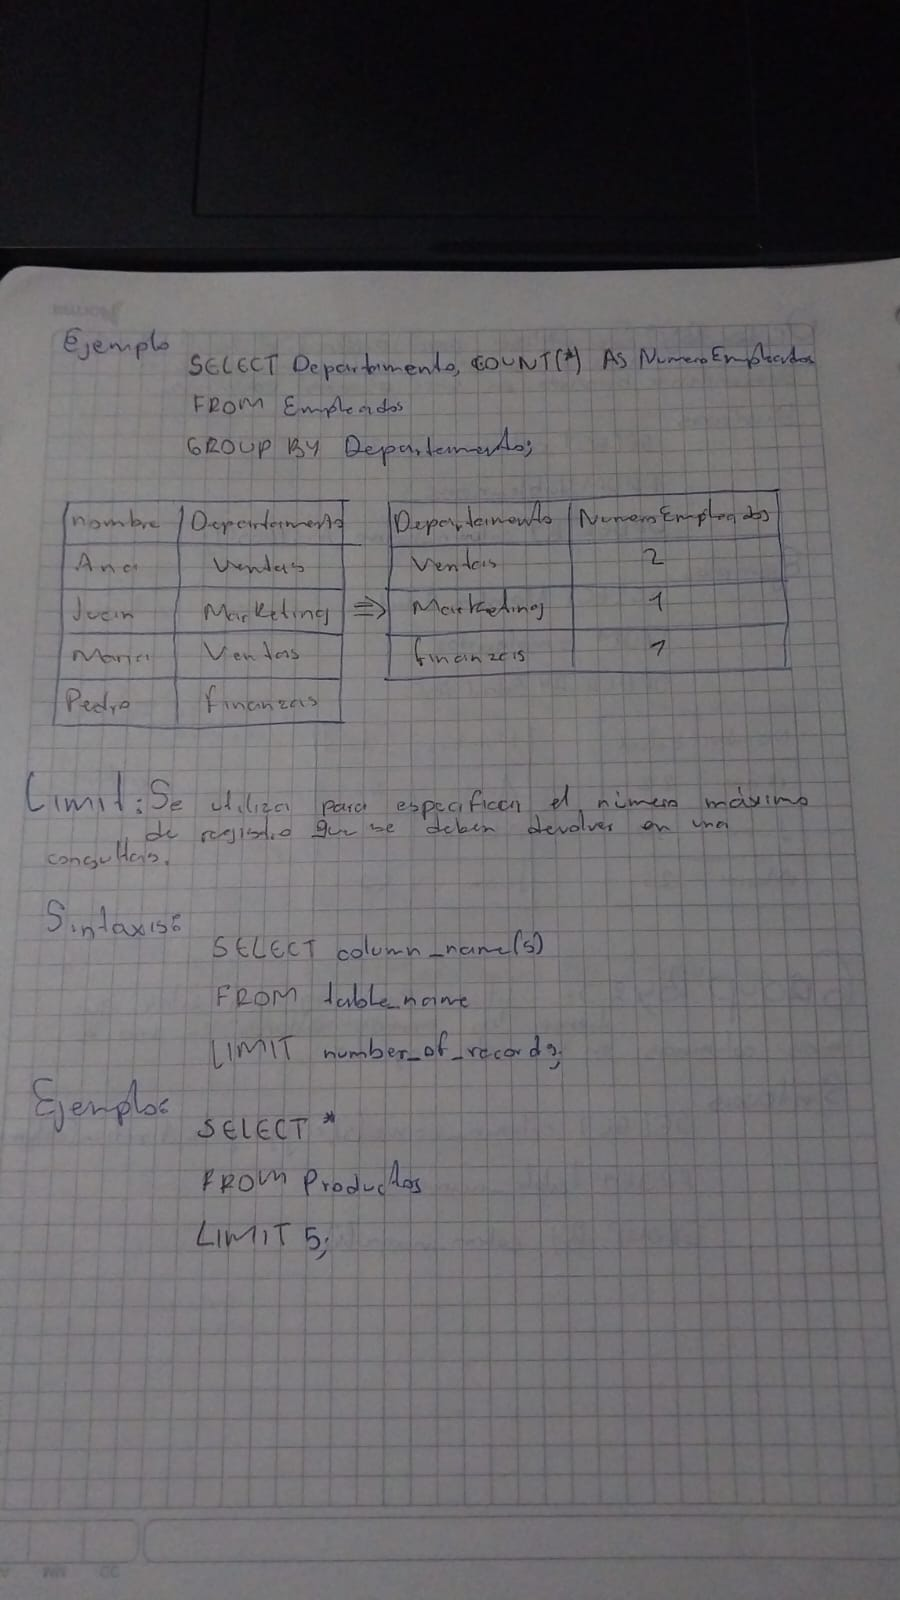 Ejemplo
SELECT Departamento, COUNT(*) AS NumeroEmpleados
FROM Empleados
GROUP BY Departamento;
nombre Departamento
Ana Ventas
Juan Marketing ⇒
Maria Ventas
Pedro finanzas
Departamento NumeroEmpleados
Ventas 2
Marketing 1
finanzas 1
Limit: Se utiliza para especificar el número máximo
de registro que se deben devolver en una
consultas.
Sintaxis:
SELECT column_name(s)
FROM table_name
LIMIT number_of_records;
Ejemplo:
SELECT *
FROM Productos
LIMIT 5;